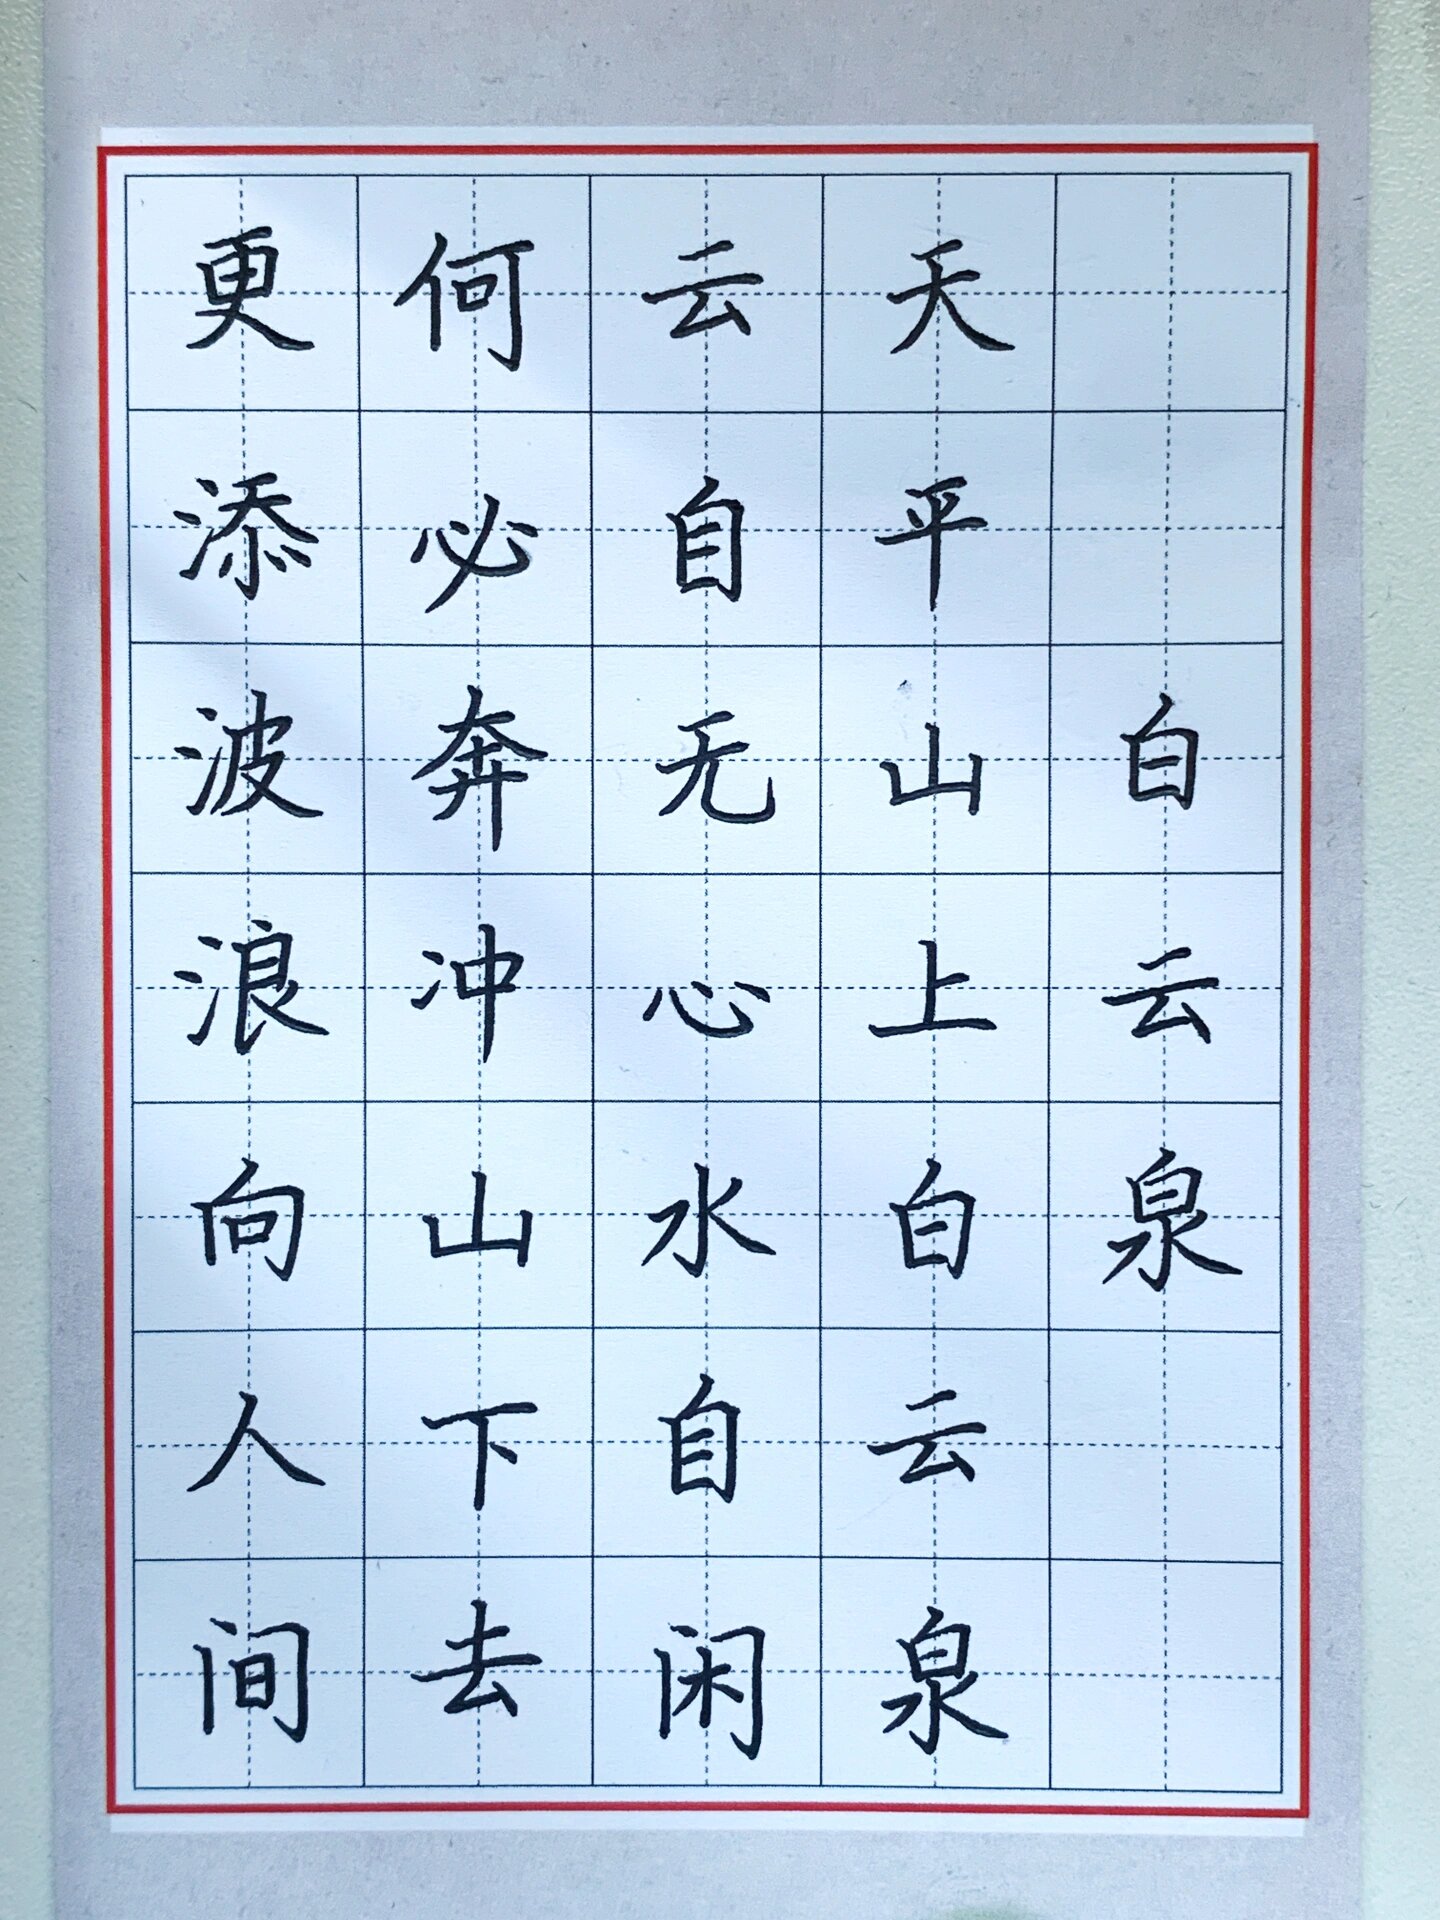 白云泉
天平山上白云泉
云自无心水自闲
何必奔冲山下去
更添波浪向人间